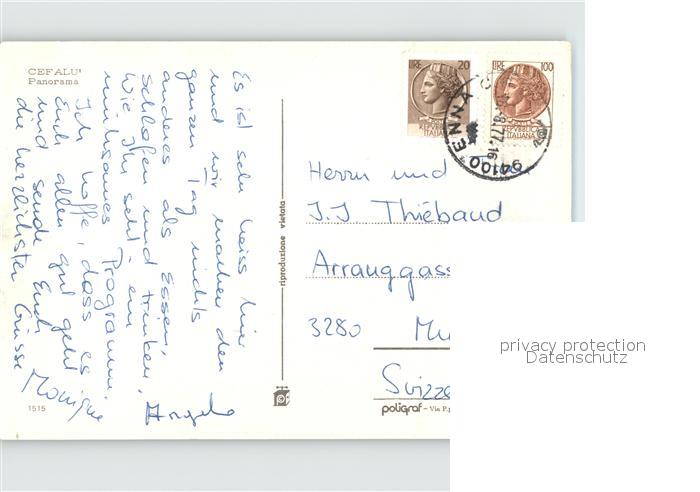 CEFALU'
Panorama
Es ist sehr heiss hier
und wir machen den
ganzen Tag nichts
anderes als Essen,
Schlafen und trinken.
Wie Ihr seht - ein
mühsames Programm.
Ich hoffe, dass es
Euch allen gut geht
und sende Euch
die herzlichsten Grüsse
Monique
Angelo
1515
riproduzione vietata
LIRE 20
REPVBBLICA
ITALIANA
LIRE 100
REPVBBLICA
ITALIANA
94100 ENNA
8.77.16
Herrn und
J.J Thiébaud
3280
poligraf - Via P.
privacy protection
Datenschutz